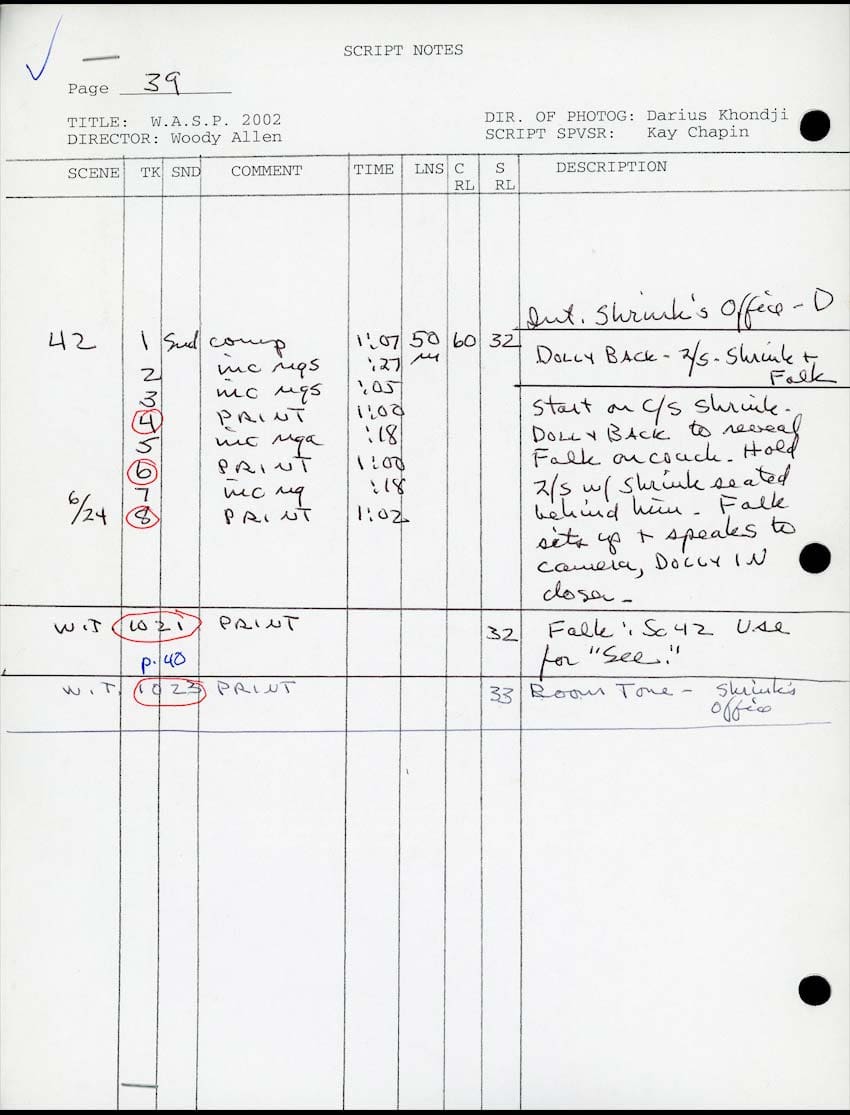 SCRIPT NOTES
Page 39
TITLE: W.A.S.P. 2002 DIR. OF PHOTOG: Darius Khondji
DIRECTOR: Woody Allen SCRIPT SPVSR: Kay Chapin
SCENE TK SND COMMENT TIME LNS C RL S RL DESCRIPTION
Int. Shrink's Office - D
42 1 Snd comp 1:07 50 60 32
DOLLY BACK - 2/S - Shrink +
Falk
2 inc ngs :27
3 inc ngs :05
4 PRINT 1:00
5 inc :18
6 PRINT 1:00
7 inc ng :18
6/24 8 PRINT 1:02
Start on C/S Shrink -
DOLLY BACK to reveal
Falk on couch. Hold
2/S w/ Shrink seated
behind him - Falk
sits up + speaks to
camera, DOLLY IN
closer -
W.T. 1021 PRINT 32 Falk: Sc 42 Use
for "See."
p. 40
W.T. 1023 PRINT 33 Room Tone - Shrink's
Office